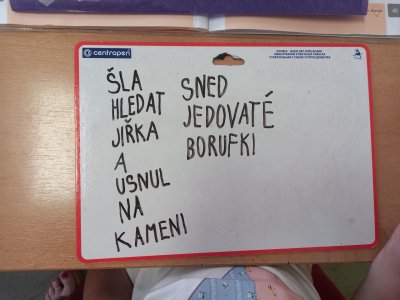 centropen
ŠLA
HLEDAT
JIŘKA
A
USNUL
NA
KAMENI
SNED
JEDOVATÉ
BORUFKI